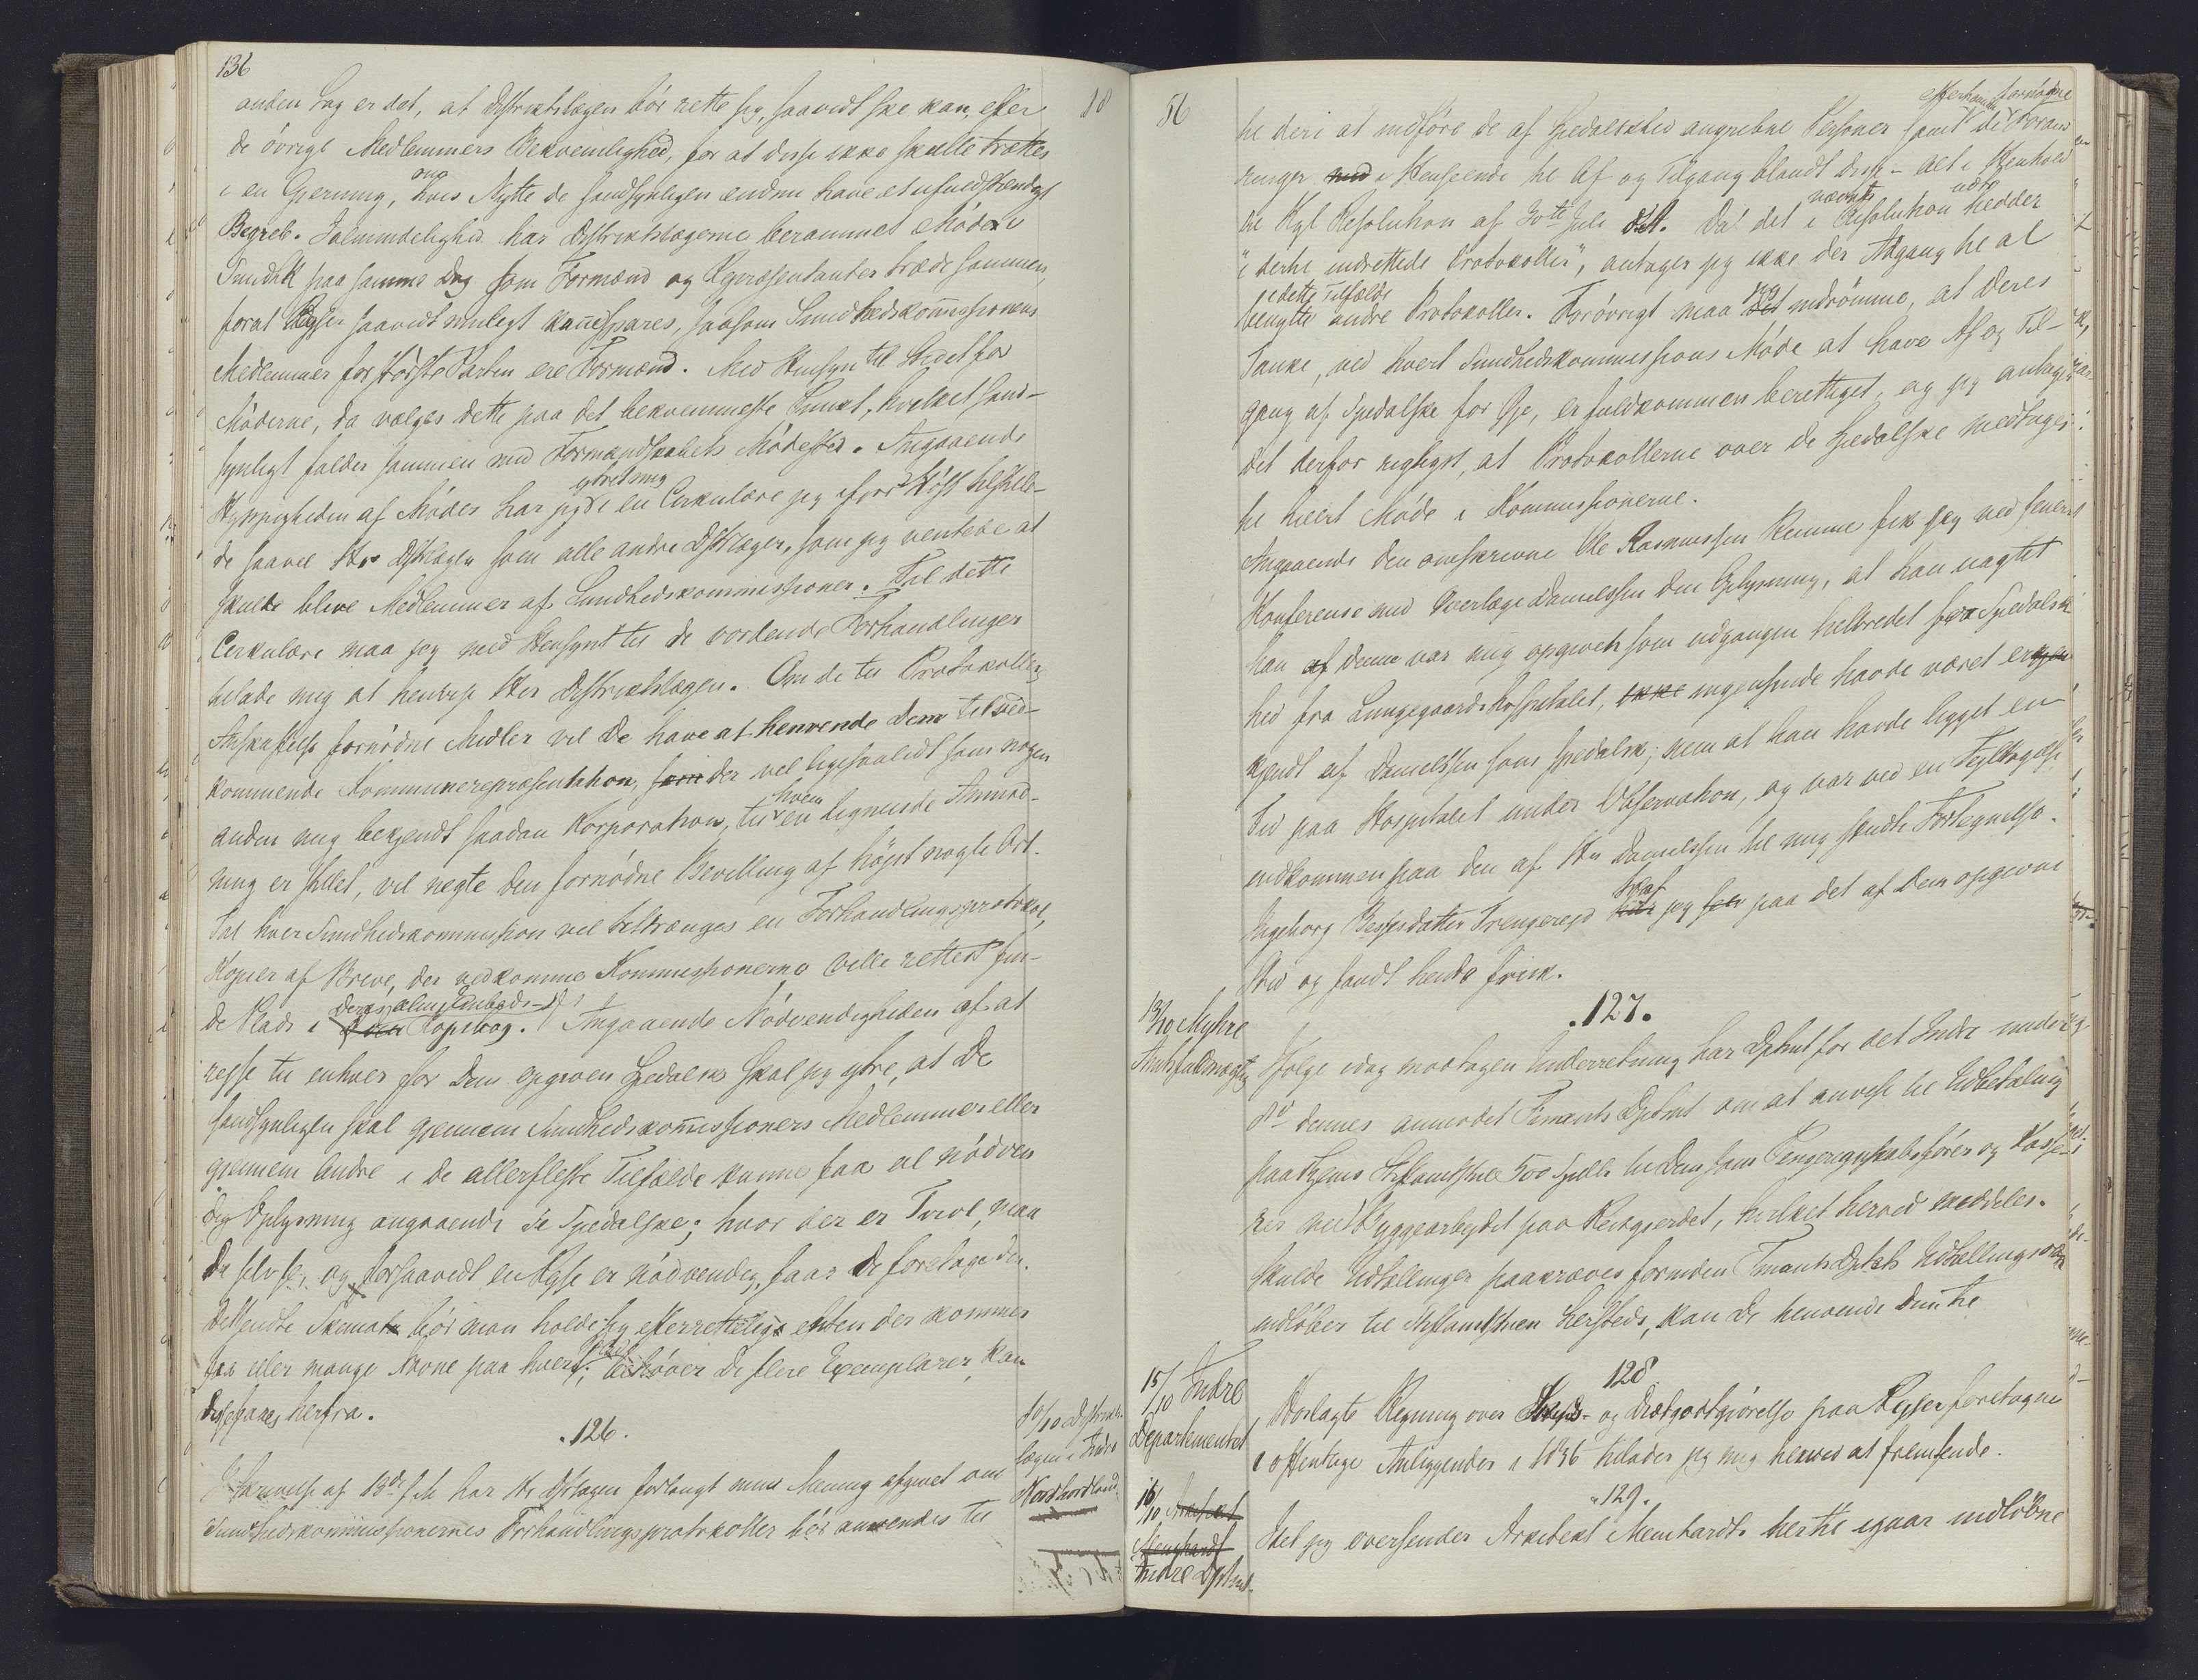 136
anden Sag er det, at Distriktslægen bör rette sig, saavidt ske kan, efter
de övrige Medlemmers Bekvemlighed, for at disse ikke skulle trættes
i en Gjerning, om hvis Nytte de sandsynligen endnu have et ufuldstændigt
Begreb. I Almindelighed har Distriktslægerne berammet Möder i
SundhK paa samme Dag som Formænd og Repræsentanter træde sammen,
forat Reiser saavidt muligt kan spares, saasom Sundhedskommissionens
Medlemmer for störste Parten ere Formænd. Med Hensyn til Stedet for
Möderne, da vælges dette paa det bekvemmeste Punct, hvilket sand-
synligt falder sammen med Formandskabets Mödested. Angaaende
Hyppigheden af Möder har jeg ytret mig i en Cirkulære jeg ifjor Höst tilskrev-
de saavel Hr Distlægen som alle andre Distlæger, som jeg ventede at
skulde blive Medlemmer af Sundhedskommissioner. Til dette
Cirkulære maa jeg med Hensyn til de vordende Forhandlinger
tillade mig at henvise Herr Distriktslægen. Om de til Protokollers
Anskaffelse fornödne Midler vil De have at henvende Dem til ved-
kommende Kommunerepresentation, der vel ligesaalidt som nogen
anden mig bekjendt saadan Korporation, til hvem en lignende Anmod-
ning er stillet, vil negte den fornödne Bevilling af höjst nogle Ort.
Ial hver Sundhedskommission vil tiltrænges en Forhandlingsprotokol,
Kopier af Breve, der vedkomme Kommissionerne ville rettest fin-
de Plads i Deres alm. Embeds- Kopibog. Angaaende Nödvendigheden af at
rejse til enhver for Dem opgiven Spedalsk skal jeg ytre, at De
sandsynligen skal gjennem Sundhedskommissioners Medlemmer eller
gjennem Andre i de allerfleste Tilfælde kunne faa al nödven
dig Oplysning angaaende de Spedalske; hvor der er Tvivl, maa
De selv se, og forsaavidt en Rejse er nödvendig, faar De foretage den.
Det sendte Skema bör man holde sig efterretteligt enten der kommer
faa eller mange Navne paa hvert; behöver De flere Exemplarer, kan
disse faaes herfra.
.126.
10/10 Distrikts-
lægen i Indre
Nordhordland
I Skrivelse af 13de f M har Hr Distlægen forlangt min Mening afgivet om
Sundhedskommissionernes Forhandlingsprotokoller bör anvendes til
56
til deri at indföre de af Spedalskhed angrebne Personer samt de efterhaanden fornødne Foran
ringer i Henseende til Af og Tilgang blandt disse - Alt i Henhold
til Kgl Resolution af 30te Juli d.A. Da det i nævnte Resolution udtr. hedder
"i dertil indrettede Protokoller", antager jeg ikke der Adgang til at
benytte i dette Tilfælde andre Protokoller. Forövrigt maa jeg indrömme, at Deres
Tanke, ved hvert Sundhedskommissions Möde at have Af og Til-
gang af Spedalske for Øje, er fuldkommen berettiget, og jeg antager
det derfor rigtigst, at Protokollerne over de Spedalske medtages
til hvert Möde i Kommissionerne.
Angaaende den omskrevne Ole Rasmussen Remme fik jeg ved seneste
Konference med Overlæge Danielssen den Oplysning, at han uagtet
han af denne var mig opgiven som udgangen helbredet fra Spedalsk
hed fra Lungegaards Hospitalet, ingensinde havde været er
kjendt af Danielssen som spedalsk; men at han havde ligget en
Tid paa Hospitalet under Observation, og var ved en Fejltagelse
indkommen paa den af Hr Danielssen til mig sendte Fortegnelse.
Ingeborg traf jeg paa det af Dem opgivne
Sted og fandt hende frisk.
.127.
13/10 Myhre
Amtsfuldmægtig
Ifölge idag modtagen Underretning har Dptmt for det Indre under
8de dennes anmodet Finants Dptmt om at anvise til Udbetaling
paa Hjems Stiftamtstue 500 Spdlr til Dem som Pengeregnskabsförer og Kasse-
rer ved Byggearbejdet paa Reitgjerdet, hvilket herved meddeles.
Skulde Udtællinger paakræves forinden Finants Dptmts Udtællingsordre
indlöber til Stiftamtstuen hersteds, kan De henvende Dem til
128
15/10 Indre
Departementet
Vorlagte Regning over Skyds- og Diætgodtgjörelse paa Rejser foretagne
i offentlige Anliggender i 1856 tillader jeg mig herved at fremsende.
.129.
16/10 Arkitekt
Meinhardt
Indre Dptmt
Idet jeg oversender Arkitekt Meinhardts hertil igaar indlöbne